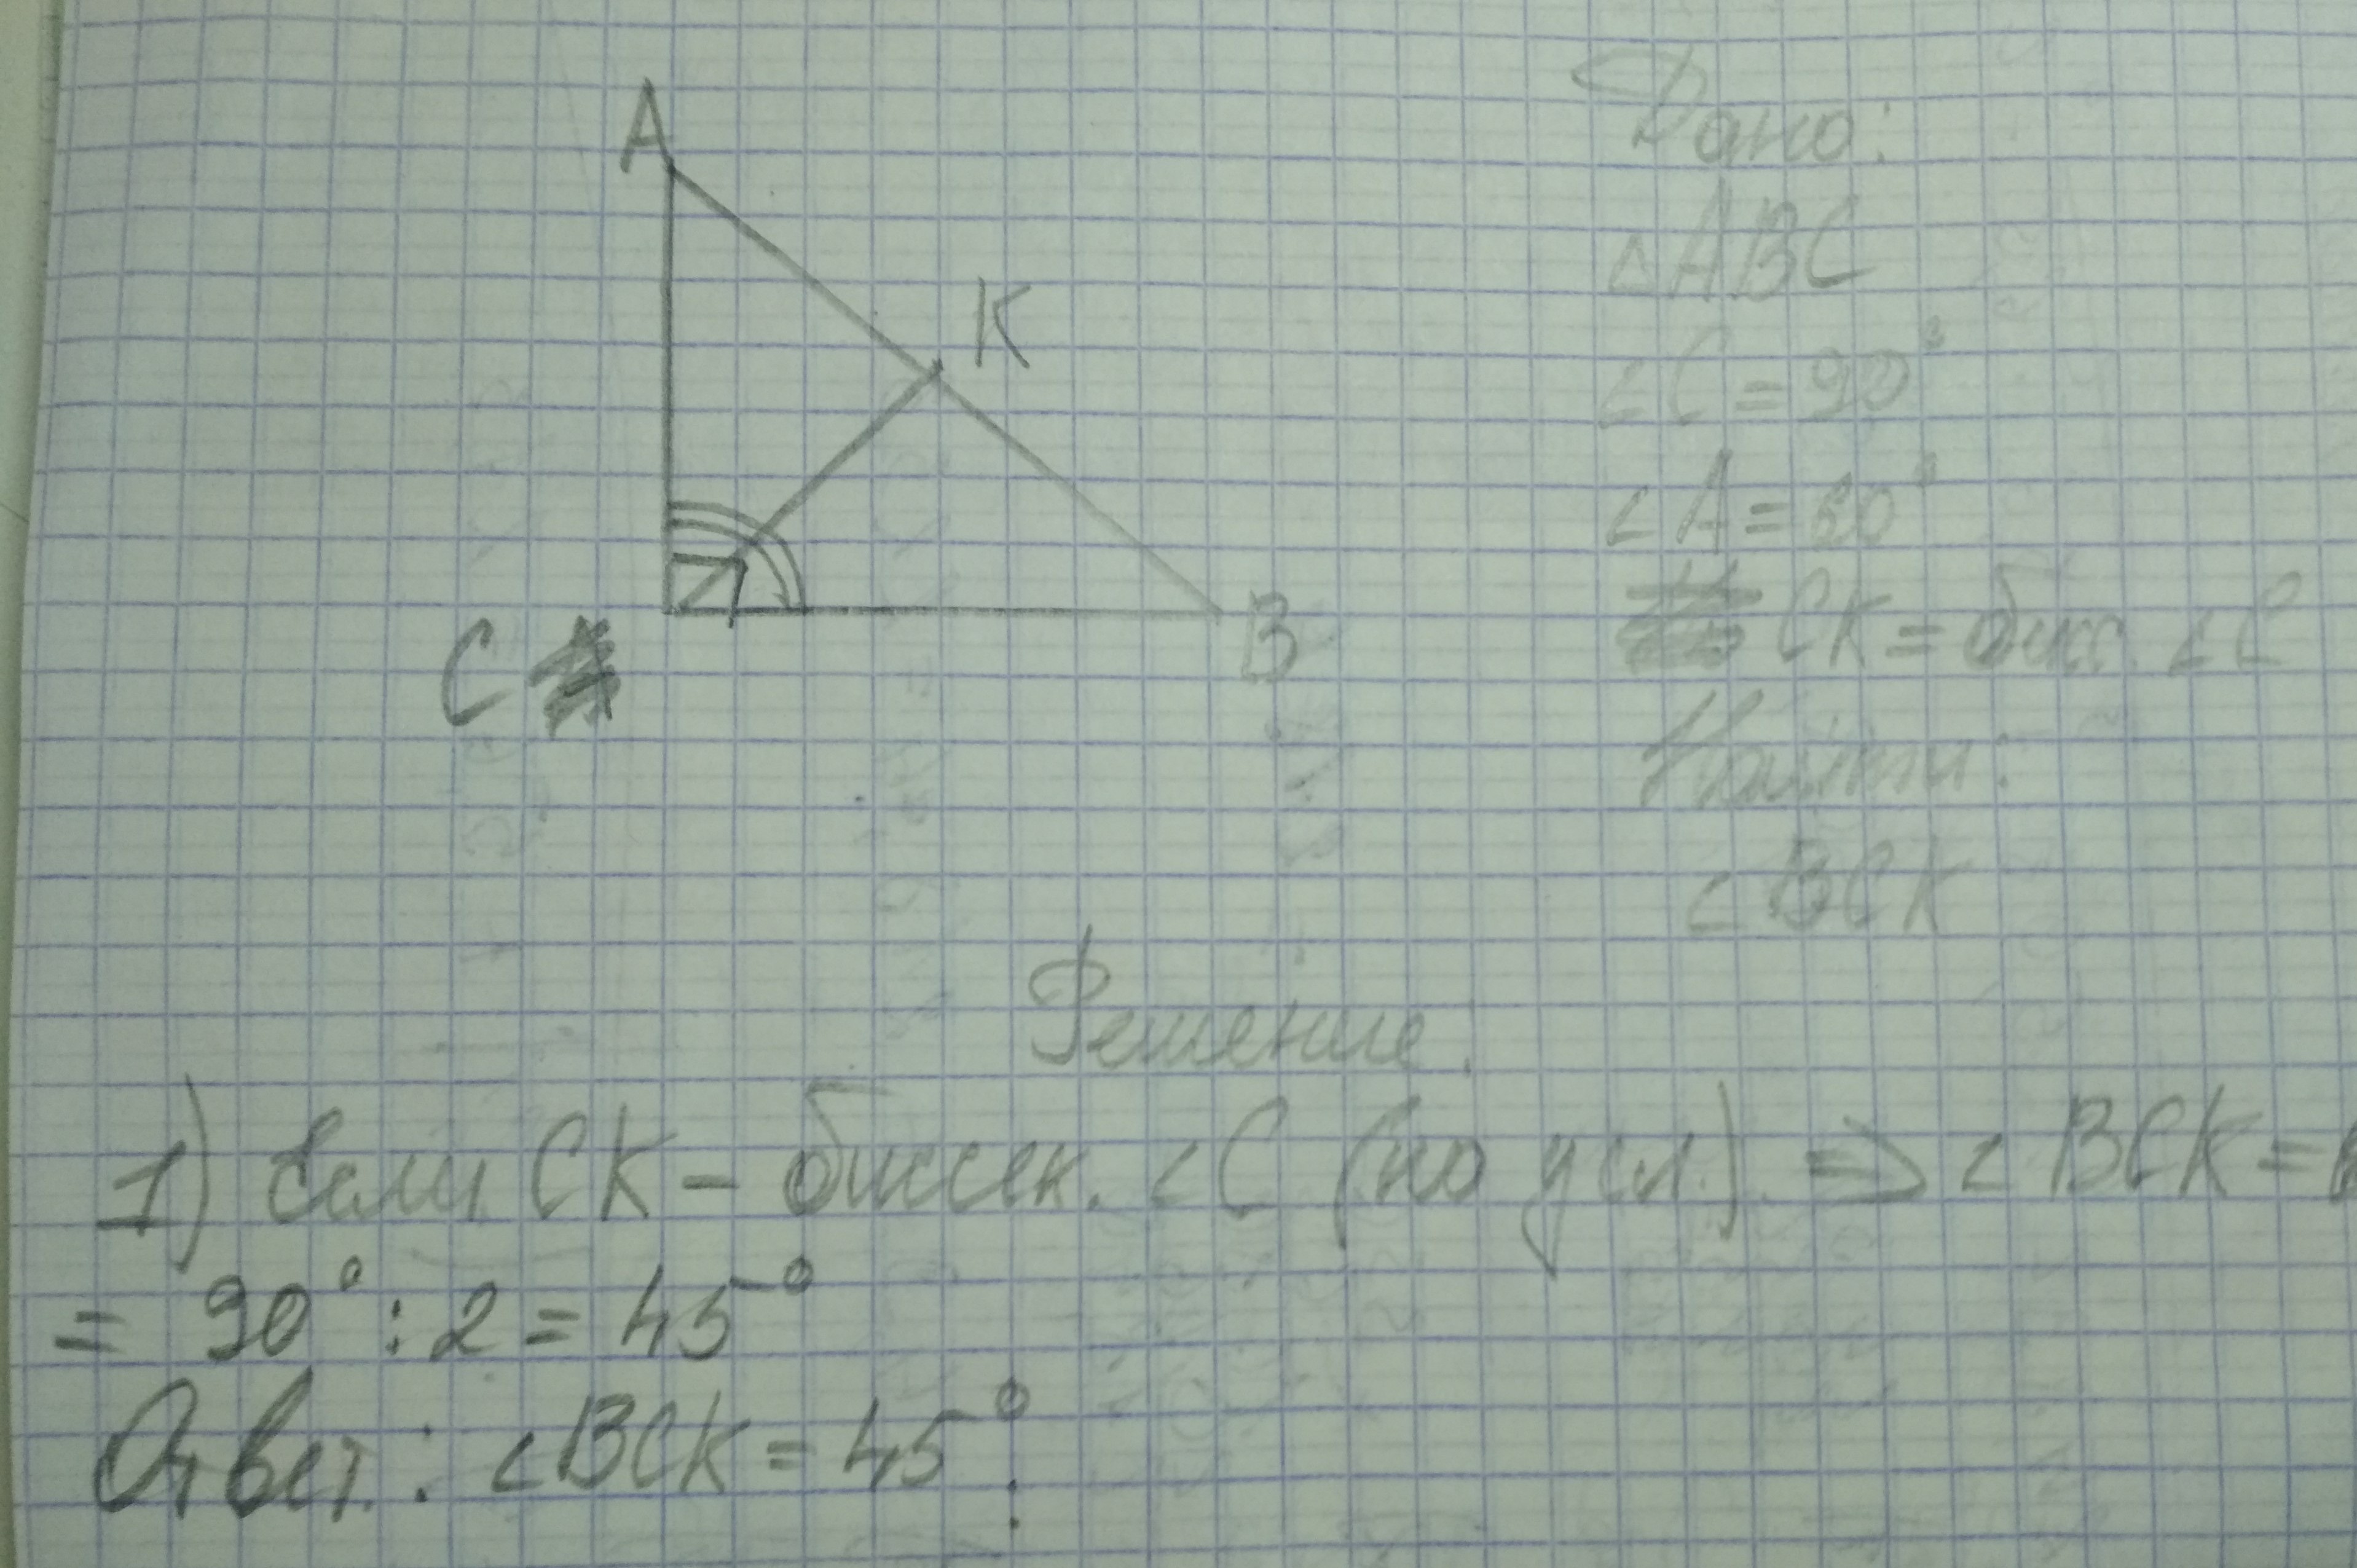 A
K
C
B
Дано:
△ABC
∠C = 90°
∠A = 50°
CK = бисс. ∠C
Найти:
∠BCK
Решение.
1) Если CK – биссек. ∠C (по усл.) ⇒ ∠BCK =
= 90° : 2 = 45°
Ответ: ∠BCK = 45°.